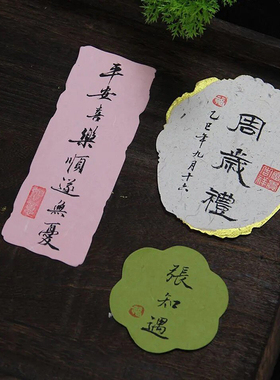 平安喜樂順遂無憂
周歲禮
乙巳年九月十六
張知遇